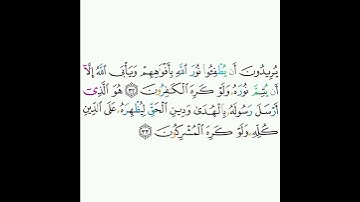 يُرِيدُونَ أَن يُطْفِـُٔوا۟ نُورَ ٱللَّهِ بِأَفْوَٰهِهِمْ وَيَأْبَى ٱللَّهُ إِلَّآ
أَن يُتِمَّ نُورَهُۥ وَلَوْ كَرِهَ ٱلْكَـٰفِرُونَ ٣٢ هُوَ ٱلَّذِىٓ
أَرْسَلَ رَسُولَهُۥ بِٱلْهُدَىٰ وَدِينِ ٱلْحَقِّ لِيُظْهِرَهُۥ عَلَى ٱلدِّينِ
كُلِّهِۦ وَلَوْ كَرِهَ ٱلْمُشْرِكُونَ ٣٣